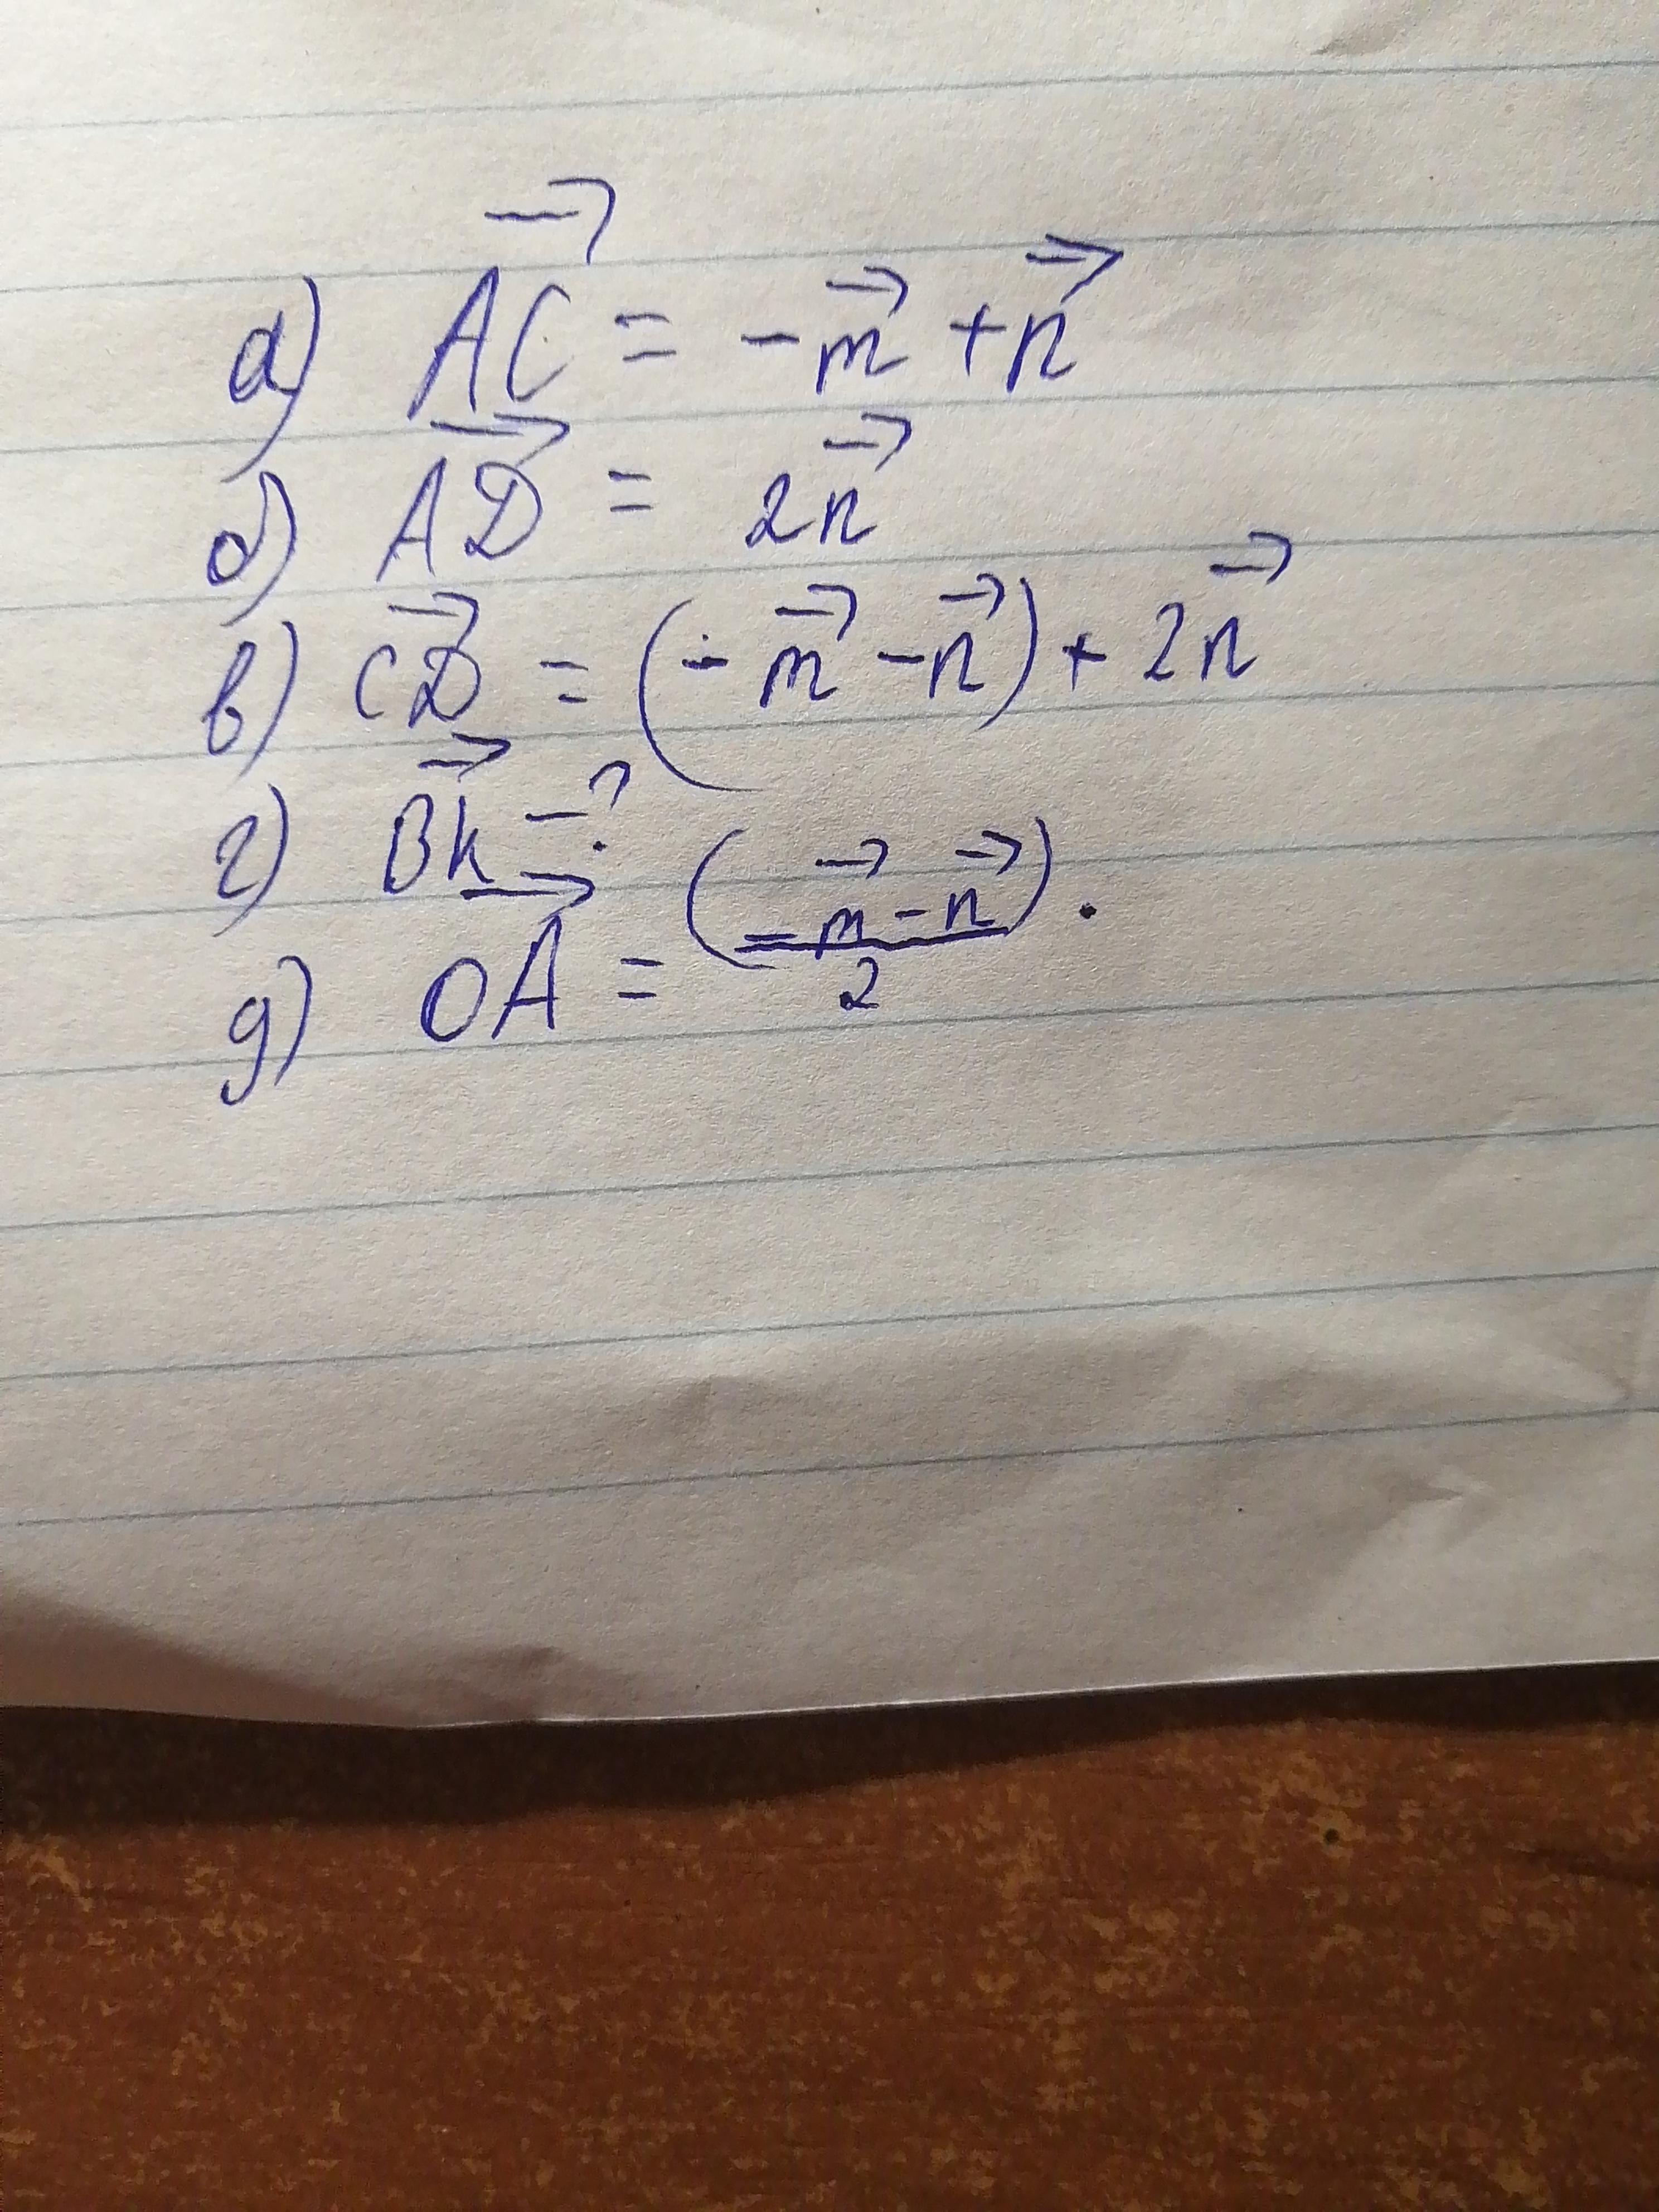 а) AC⃗ = -m⃗ + n⃗
б) AD⃗ = 2n⃗
в) CD⃗ = (-m⃗ - n⃗) + 2n⃗
г) BK⃗ - ?
д) OA⃗ = (-m⃗ - n⃗)/2 .